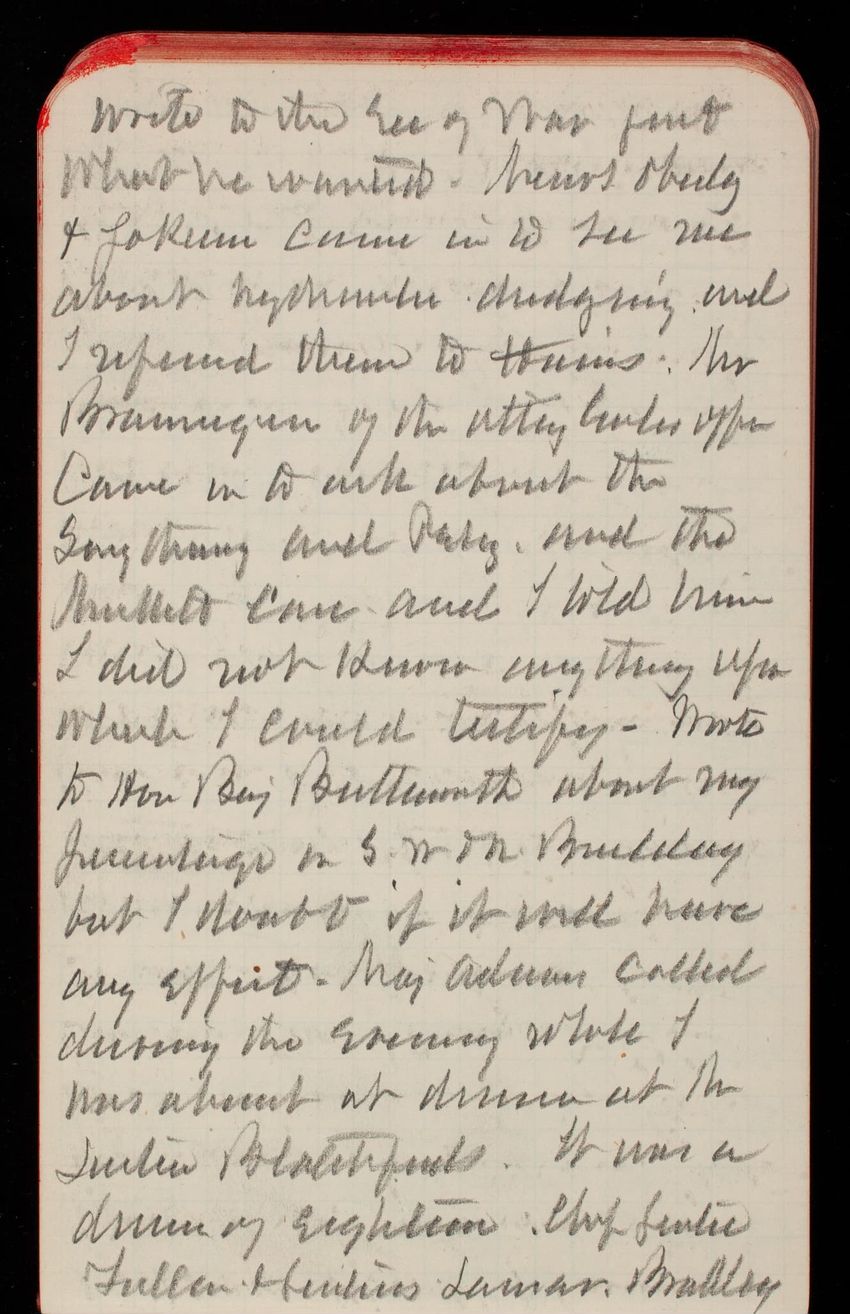 write to the Sec of War just
what he wanted. Messrs
& Jokum came in to see me
about hydraulic dredging and
I refered them to Hains. Mr
of the Atty Genls offce
Came in to ask about the
Smything and and the
Case and I told him
I did not know anything upon
which I could testify - Wrote
to Hon Benj Butterworth about my
percentage on S W & N Building
but I doubt if it will have
any effect. Maj Adams called
during the evening while I
was absent at dinner at the
Justice Blatchfords. It was a
dinner of eighteen. Chf Justice
Fuller & Justices Lamar. Bradley